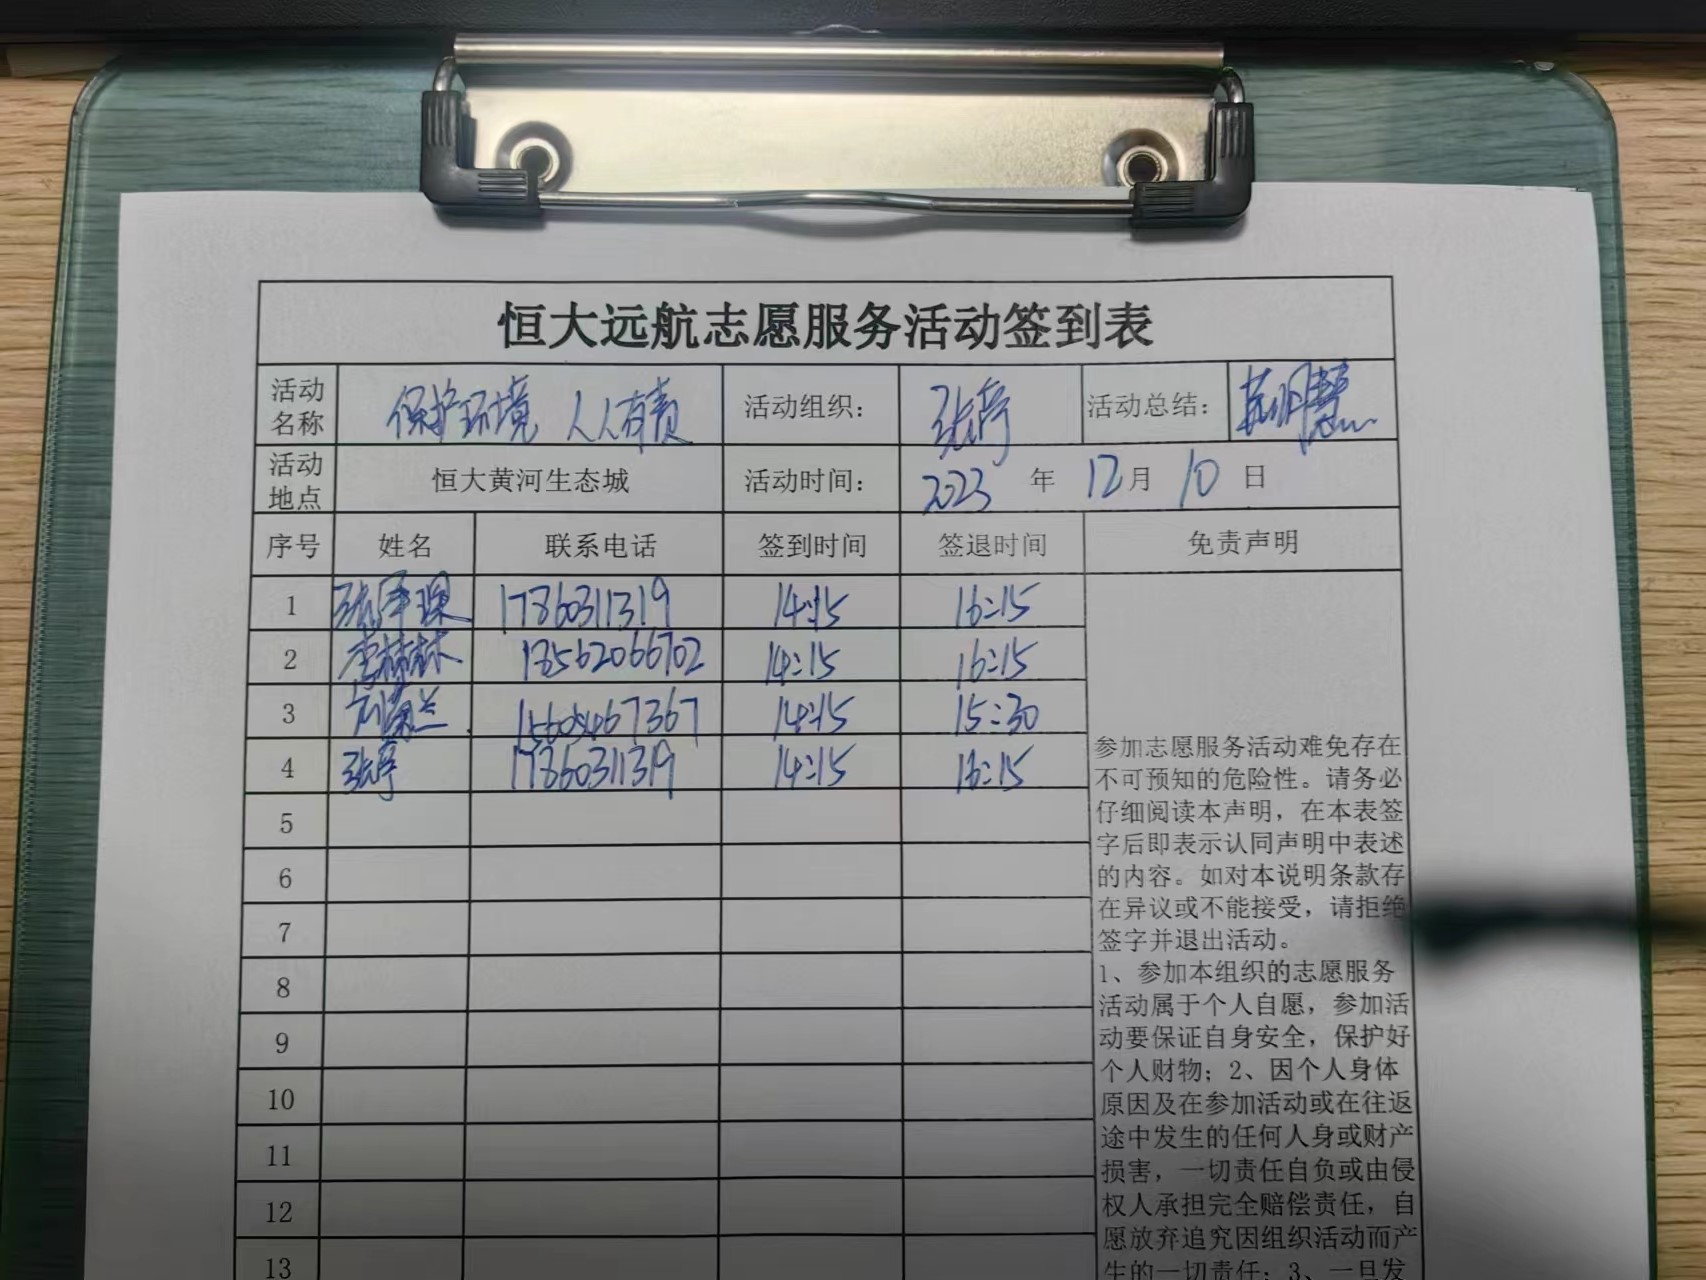 恒大远航志愿服务活动签到表
活动名称 保护环境 人人有责 活动组织: 张亭 活动总结:
活动地点 恒大黄河生态城 活动时间: 2023 年 12 月 10 日
序号 姓名 联系电话 签到时间 签退时间 免责声明
1 17860311319 14:15 16:15
2 李林林 18562066702 14:15 16:15
3 15605467367 14:15 15:30
4 张亭 17860311319 14:15 16:15
5
6
7
8
9
10
11
12
13
参加志愿服务活动难免存在
不可预知的危险性。请务必
仔细阅读本声明，在本表签
字后即表示认同声明中表述
的内容。如对本说明条款存
在异议或不能接受，请拒绝
签字并退出活动。
1、参加本组织的志愿服务
活动属于个人自愿，参加活
动要保证自身安全，保护好
个人财物；2、因个人身体
原因及在参加活动或在往返
途中发生的任何人身或财产
损害，一切责任自负或由侵
权人承担完全赔偿责任，自
愿放弃追究因组织活动而产
生的一切责任；3、一旦发